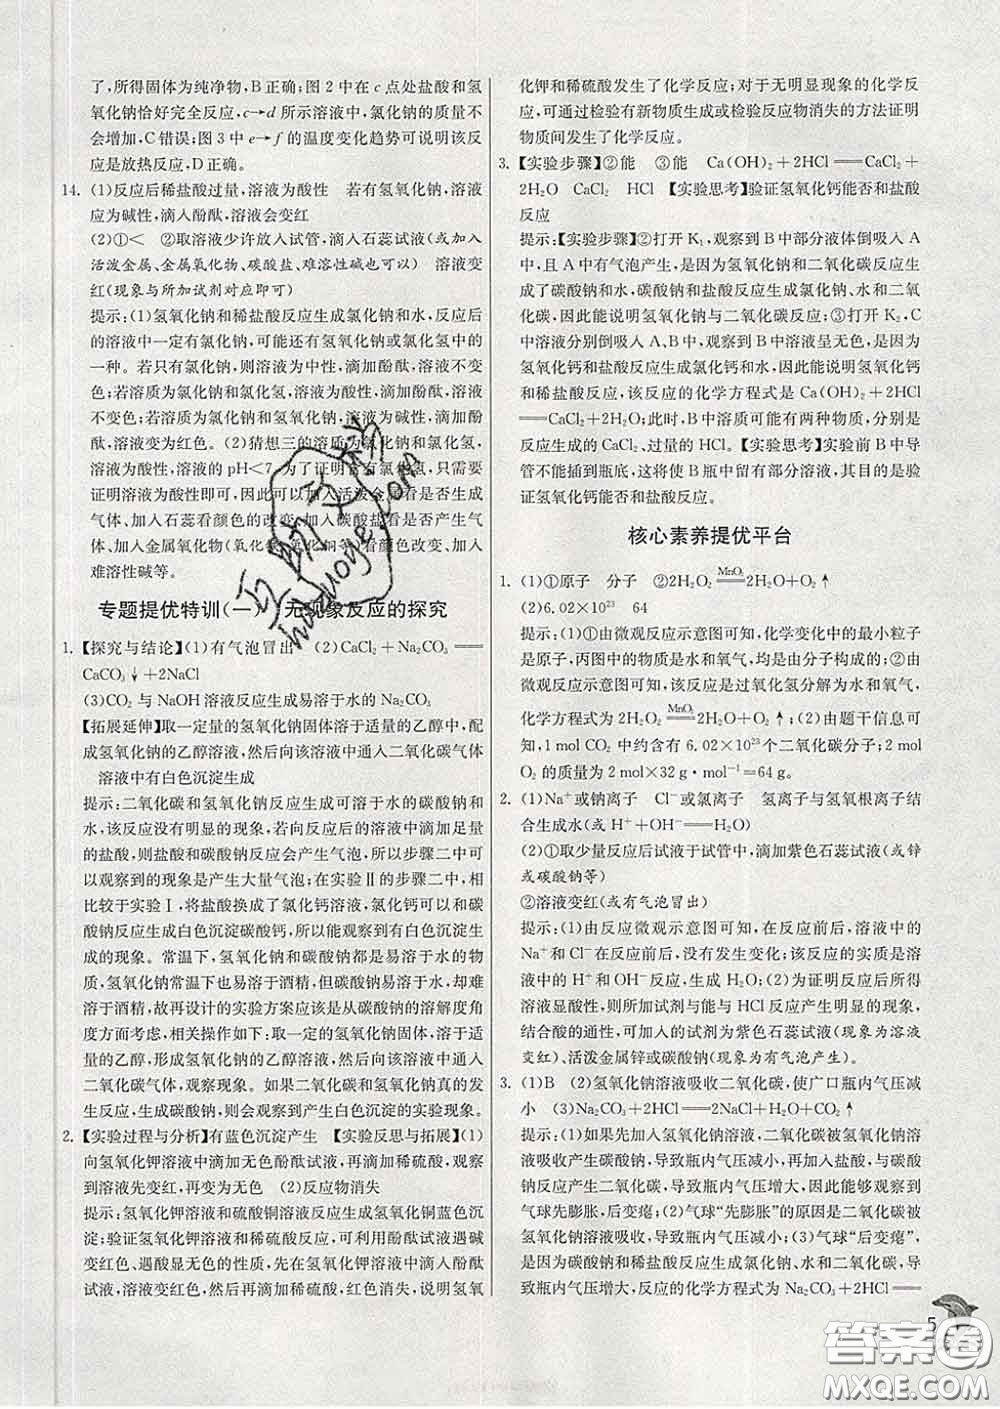 了,所得固体为纯净物,B正确;图2中在c点处盐酸和氢
氧化钠恰好完全反应,c→d所示溶液中,氯化钠的质量不
会增加,C错误;图3中e→f的温度变化趋势可说明该反
应是放热反应,D正确。
14. (1)反应后稀盐酸过量,溶液为酸性 若有氢氧化钠,溶液
应为碱性,滴入酚酞,溶液会变红
(2)①< ②取溶液少许放入试管,滴入石蕊试液(或加入
活泼金属、金属氧化物、碳酸盐、难溶性碱也可以) 溶液变
红(现象与所加试剂对应即可)
提示:(1)氢氧化钠和稀盐酸反应生成氯化钠和水,反应后
的溶液中一定有氯化钠,可能还有氢氧化钠或氯化氢中的
一种。若只有氯化钠,则溶液为中性,滴加酚酞,溶液不变
色;若溶质为氯化钠和氯化氢,溶液为酸性,滴加酚酞,溶液
不变色;若溶质为氯化钠和氢氧化钠,溶液为碱性,滴加酚
酞,溶液变为红色。(2)猜想三的溶质为氯化钠和氯化氢,
溶液为酸性,溶液的pH<7,为了证明含有氯化氢,只需要
证明溶液为酸性即可,因此可以加入活泼金属看是否生成
气体、加入石蕊看颜色的改变、加入碳酸盐看是否产生气
体、加入金属氧化物(氧化铁、氧化铜等)看颜色改变、加入
难溶性碱等。
专题提优特训(一) 无现象反应的探究
1. 【探究与结论】(1)有气泡冒出 (2)CaCl₂+Na₂CO₃══
CaCO₃↓+2NaCl
(3)CO₂与NaOH溶液反应生成易溶于水的Na₂CO₃
【拓展延伸】取一定量的氢氧化钠固体溶于适量的乙醇中,配
成氢氧化钠的乙醇溶液,然后向该溶液中通入二氧化碳气体
溶液中有白色沉淀生成
提示:二氧化碳和氢氧化钠反应生成可溶于水的碳酸钠和
水,该反应没有明显的现象,若向反应后的溶液中滴加足量
的盐酸,则盐酸和碳酸钠反应会产生气泡,所以步骤二中可
以观察到的现象是产生大量气泡;在实验Ⅱ的步骤二中,相
比较于实验Ⅰ,将盐酸换成了氯化钙溶液,则氯化钙可以和碳
酸钠反应生成白色沉淀碳酸钙,所以能观察到有白色沉淀生
成的现象。常温下,氢氧化钠和碳酸钠都是易溶于水的物
质,氢氧化钠常温下还是易溶于酒精,但是碳酸钠常温下却难
溶于酒精,故再设计的实验方案应该是从碳酸钠的溶解度角
度方面去考虑,相关操作如下:取一定的氢氧化钠固体,溶于适
量的乙醇,形成氢氧化钠的乙醇溶液,然后向该溶液中通入
二氧化碳气体,观察现象。如果二氧化碳和氢氧化钠真的发
生反应,生成碳酸钠,则会观察到产生白色沉淀的实验现象。
2. 【实验过程与分析】有蓝色沉淀产生 【实验反思与拓展】(1)
向氢氧化钾溶液中滴加无色酚酞试液,再滴加稀硫酸,观察
到溶液先变红,再变为无色 (2)反应物消失
提示:氢氧化钾溶液和硫酸铜溶液反应生成氢氧化铜蓝色沉
淀;验证氢氧化钾溶液和稀硫酸反应,可利用酚酞试液遇碱
变红色、遇酸显无色的性质,先在氢氧化钾溶液中滴入酚酞试
液,溶液变红色,然后再滴加稀硫酸,红色消失,说明氢氧
化钾和稀硫酸发生了化学反应;对于无明显现象的化学反
应,可通过检验有新物质生成或检验反应物消失的方法证明
物质间发生了化学反应。
3. 【实验步骤】②能 ③能 Ca(OH)₂+2HCl══CaCl₂+
2H₂O CaCl₂ HCl 【实验思考】验证氢氧化钙能否和盐酸
反应
提示:【实验步骤】②打开K₁,观察到B中部分液体倒吸入A
中,且A中有气泡产生,是因为氢氧化钠和二氧化碳反应生
成了碳酸钠和水,碳酸钠和盐酸反应生成氯化钠、水和二氧
化碳,因此能说明氢氧化钠与二氧化碳反应;③打开K₂,C
中溶液分别倒吸入A、B中,观察到B中溶液呈无色,是因为
氢氧化钙和盐酸反应生成氯化钙和水,因此能说明氢氧化钙
和稀盐酸反应,该反应的化学方程式是Ca(OH)₂+2HCl
══CaCl₂+2H₂O;此时,B中溶质可能有两种物质,分别是
反应生成的CaCl₂、过量的HCl。【实验思考】实验前B中导
管不能插到瓶底,这将使B瓶中留有部分溶液,其目的是验
证氢氧化钙能否和盐酸反应。
核心素养提优平台
1. (1)①原子 分子 ②2H₂O₂ ══MnO₂══ 2H₂O+O₂↑
(2)6.02×10²³ 64
提示:(1)①由微观反应示意图可知,化学变化中的最小粒子
是原子,丙图中的物质是水和氧气,均是由分子构成;②由
微观反应示意图可知,该反应是过氧化氢分解为水和氧气,
化学方程式为2H₂O₂ ══MnO₂══ 2H₂O+O₂↑;(2)由题干信息可
知,1 mol CO₂中约含有6.02×10²³个二氧化碳分子;2 mol
O₂的质量为2 mol×32 g·mol⁻¹=64 g。
2. (1)Na⁺或钠离子 Cl⁻或氯离子 氢离子与氢氧根离子结
合生成水(或H⁺+OH⁻══H₂O)
(2)①取少量反应后试液于试管中,滴加紫色石蕊试液(或锌
或碳酸钠等)
②溶液变红(或有气泡冒出)
提示:(1)由反应微观示意图可知,在反应前后,溶液中的
Na⁺和Cl⁻在反应前后,没有发生变化;该反应的实质是溶
液中的H⁺和OH⁻反应,生成H₂O;(2)为证明反应后所得
溶液显酸性,则所加试剂与能与HCl反应产生明显的现象,
结合酸的通性,可加入的试剂为紫色石蕊试液(现象为溶液
变红)、活泼金属锌或碳酸钠(现象为有气泡产生)。
3. (1)B (2)氢氧化钠溶液吸收二氧化碳,使广口瓶内气压减
小 (3)Na₂CO₃+2HCl══2NaCl+H₂O+CO₂↑
提示:(1)如果先加入氢氧化钠溶液,二氧化碳被氢氧化钠溶
液吸收产生碳酸钠,导致瓶内气压减小,再加入盐酸,与碳酸
钠反应产生二氧化碳,导致瓶内气压增大,因此能够观察到
气球先膨胀,后变瘪;(2)气球“先膨胀”的原因是二氧化碳被
氢氧化钠溶液吸收,导致瓶内气压减小;(3)气球“后变瘪”,
是因为碳酸钠和稀盐酸反应生成氯化钠、水和二氧化碳,导
致瓶内气压增大,反应的化学方程式为Na₂CO₃+2HCl══
5
答案圈
MXQE.COM